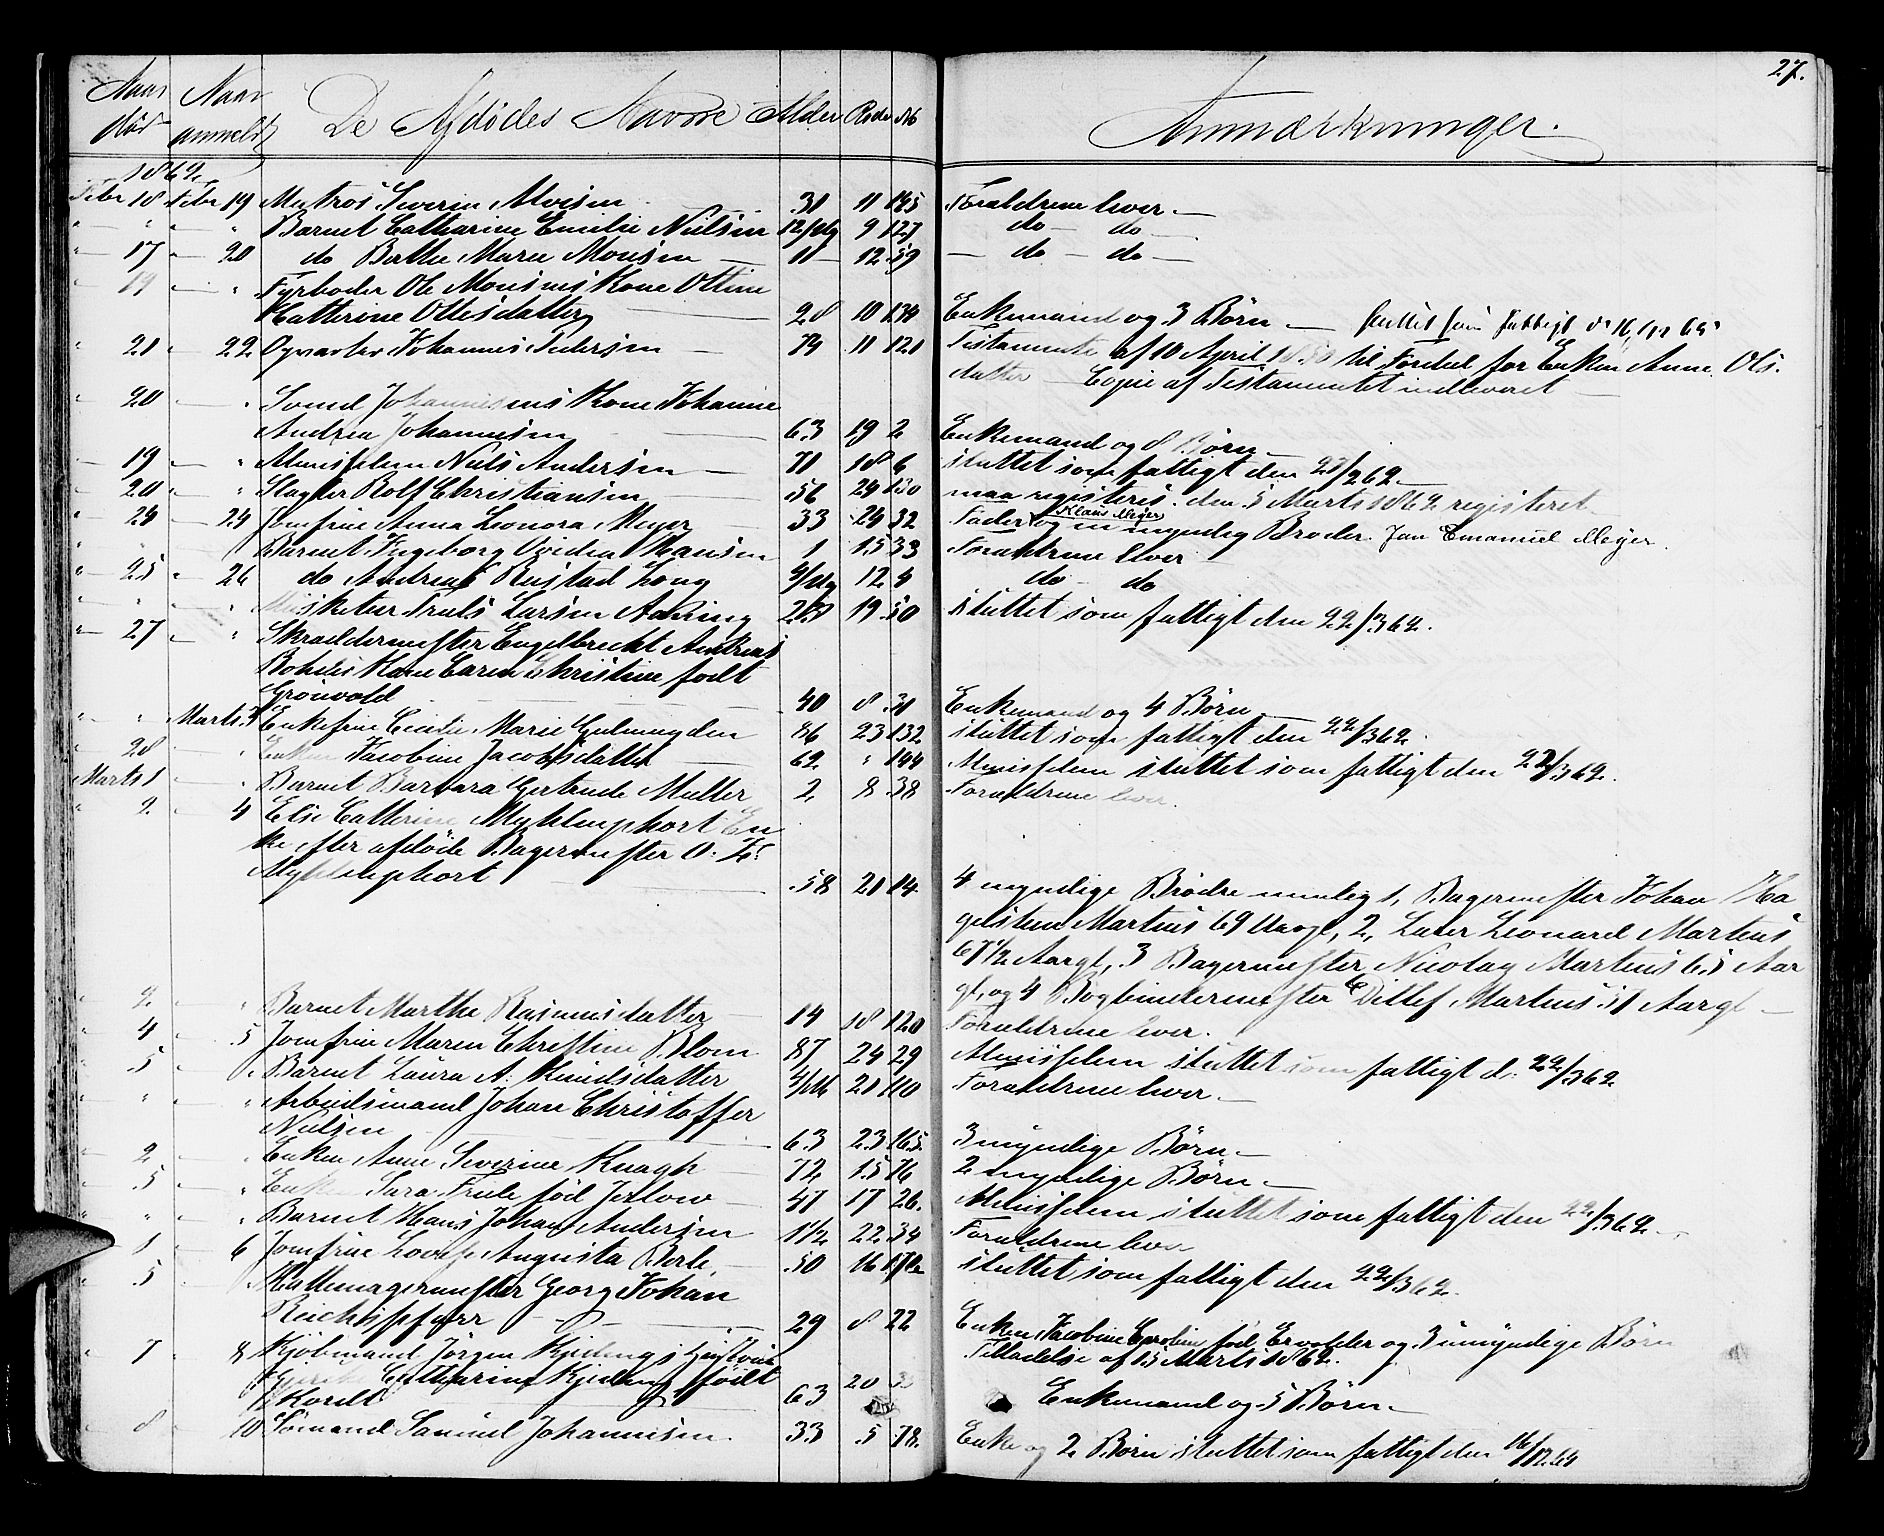 27.
Naar død Naar anmeldt De Afdødes Navne Alder Rode No Anmærkninger.
1862
Febr 18 Febr 19 Matros Severin Moisen 31 11 195 Forældrene lever.
" " " Barnet Catharine Emilie Nielsen 12/Mg 9 127 do do
" 17 " 20 do Berthe Marie Monsen 11 12 59 do do
" 19 " " Fyrbøder Ole Monsens Kone Ottine
Catterine Ottesdatter 28 10 134 Enkemand og 3 Børn sluttet som fattigt
" 21 " 22 Johannes Pedersen 79 11 121 Testamente af 10 April til Fordel for Enken Anne Ols.
datter Copie af Testamentet indleveret
" 20 " " Svend Johannesens Kone Johanne
Andrea Johannesen 63 19 2 Enkemand og 8 Børn
" 19 " " Almisselem Niels Andersen 71 18 6 sluttet som fattigt den 27/2 62
" 20 " " Slagter Rolf Christiansen 56 24 130 maa registeris. den 5 Marts 1862 registeret
" 24 " 24 Jomfrue Anna Leonora Meyer 33 24 32 Fader Klaus Meyer og en myndig Broder Jan Emanuel Meyer.
" " Barnet Ingeborg Ovidia Hansen 1 15 33 Forældrene lever
" 25 " 26 do Andreas Rustad Long 4/Mg 12 4 do do
" " " Musketer Truls Larsen 19 50 sluttet som fattigt den 22/3 62.
" 27 " " Skræddermester Engelbrecht Andreas
Kone Caren Christine født
Grønvold 40 8 31 Enkemand og 4 Børn
" " Marts 3 Enkefrue Cecilie Marie 86 23 132 sluttet som fattigt den 22/3 62.
" 28 " " Enken Jacobine Jacobsdatter 62 " 144 Almisselem sluttet som fattigt den 22/3 62.
Marts 1 " Barnet Barbara Gertrude Muller 2 8 38 Forældrene lever.
" 2 " 4 Elsi Catterine Myhlenphort En
ke efter afdøde Bagermester O. L.
Myhlenphort 58 21 14 4 myndige Brødre nemlig 1, Bagermester Johan Ha
gelsteen Martens 69 Aargl, 2, Leonard Martens
67 1/2 Aargl, 3 Bagermester Nicolay Martens 65 Aar
gl, og 4 Bogbindermester Ditlef Martens 51 Aargl
" 2 " " Barnet Marthe Rasmusdatter 14 18 120 Forældrene lever.
" 4 " 5 Jomfrue Maren Christine Blom 87 24 29 Almisselem sluttet som fattigt d. 22/3 62
" 5 " " Barnet Laura A. Knudsdatter 4/Mg 21 110 Forældrene lever.
" " " Arbeidsmand Johan Christoffer
Nielsen 63 23 165 3 myndige Børn
" 2 " " Enken Anne Severine Knagh 72 15 76 2 myndige Børn
" 5 " " Enken Sara Friele fød 47 17 26 Almisselem sluttet som fattigt den 22/3 62
" " " Barnet Hans Johan Andersen 1 1/2 22 34 Forældrene lever
" 1 " 6 Jomfrue Lovise Augusta Berle 50 16 sluttet som fattigt den 22/3 62.
" 5 " Hattemagermester Georg Johan
Reichspfarr 29 8 22 Enken Jacobine Caroline fød og 3 umyndige Børn
Tilladelse af 13 Marts 1862.
" 7 " 8 Kjøbmand Jørgen Kjedings
Catharine Kjeding født
63 20 Enkemand og 5 Børn
" 8 " 10 Sømand Samuel Johannesen. 33 5 78 Enke og 2 Børn sluttet som fattigt den